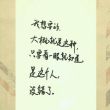 我想要的
大概就是这种
只需看一眼就知道
是这个人
没错了